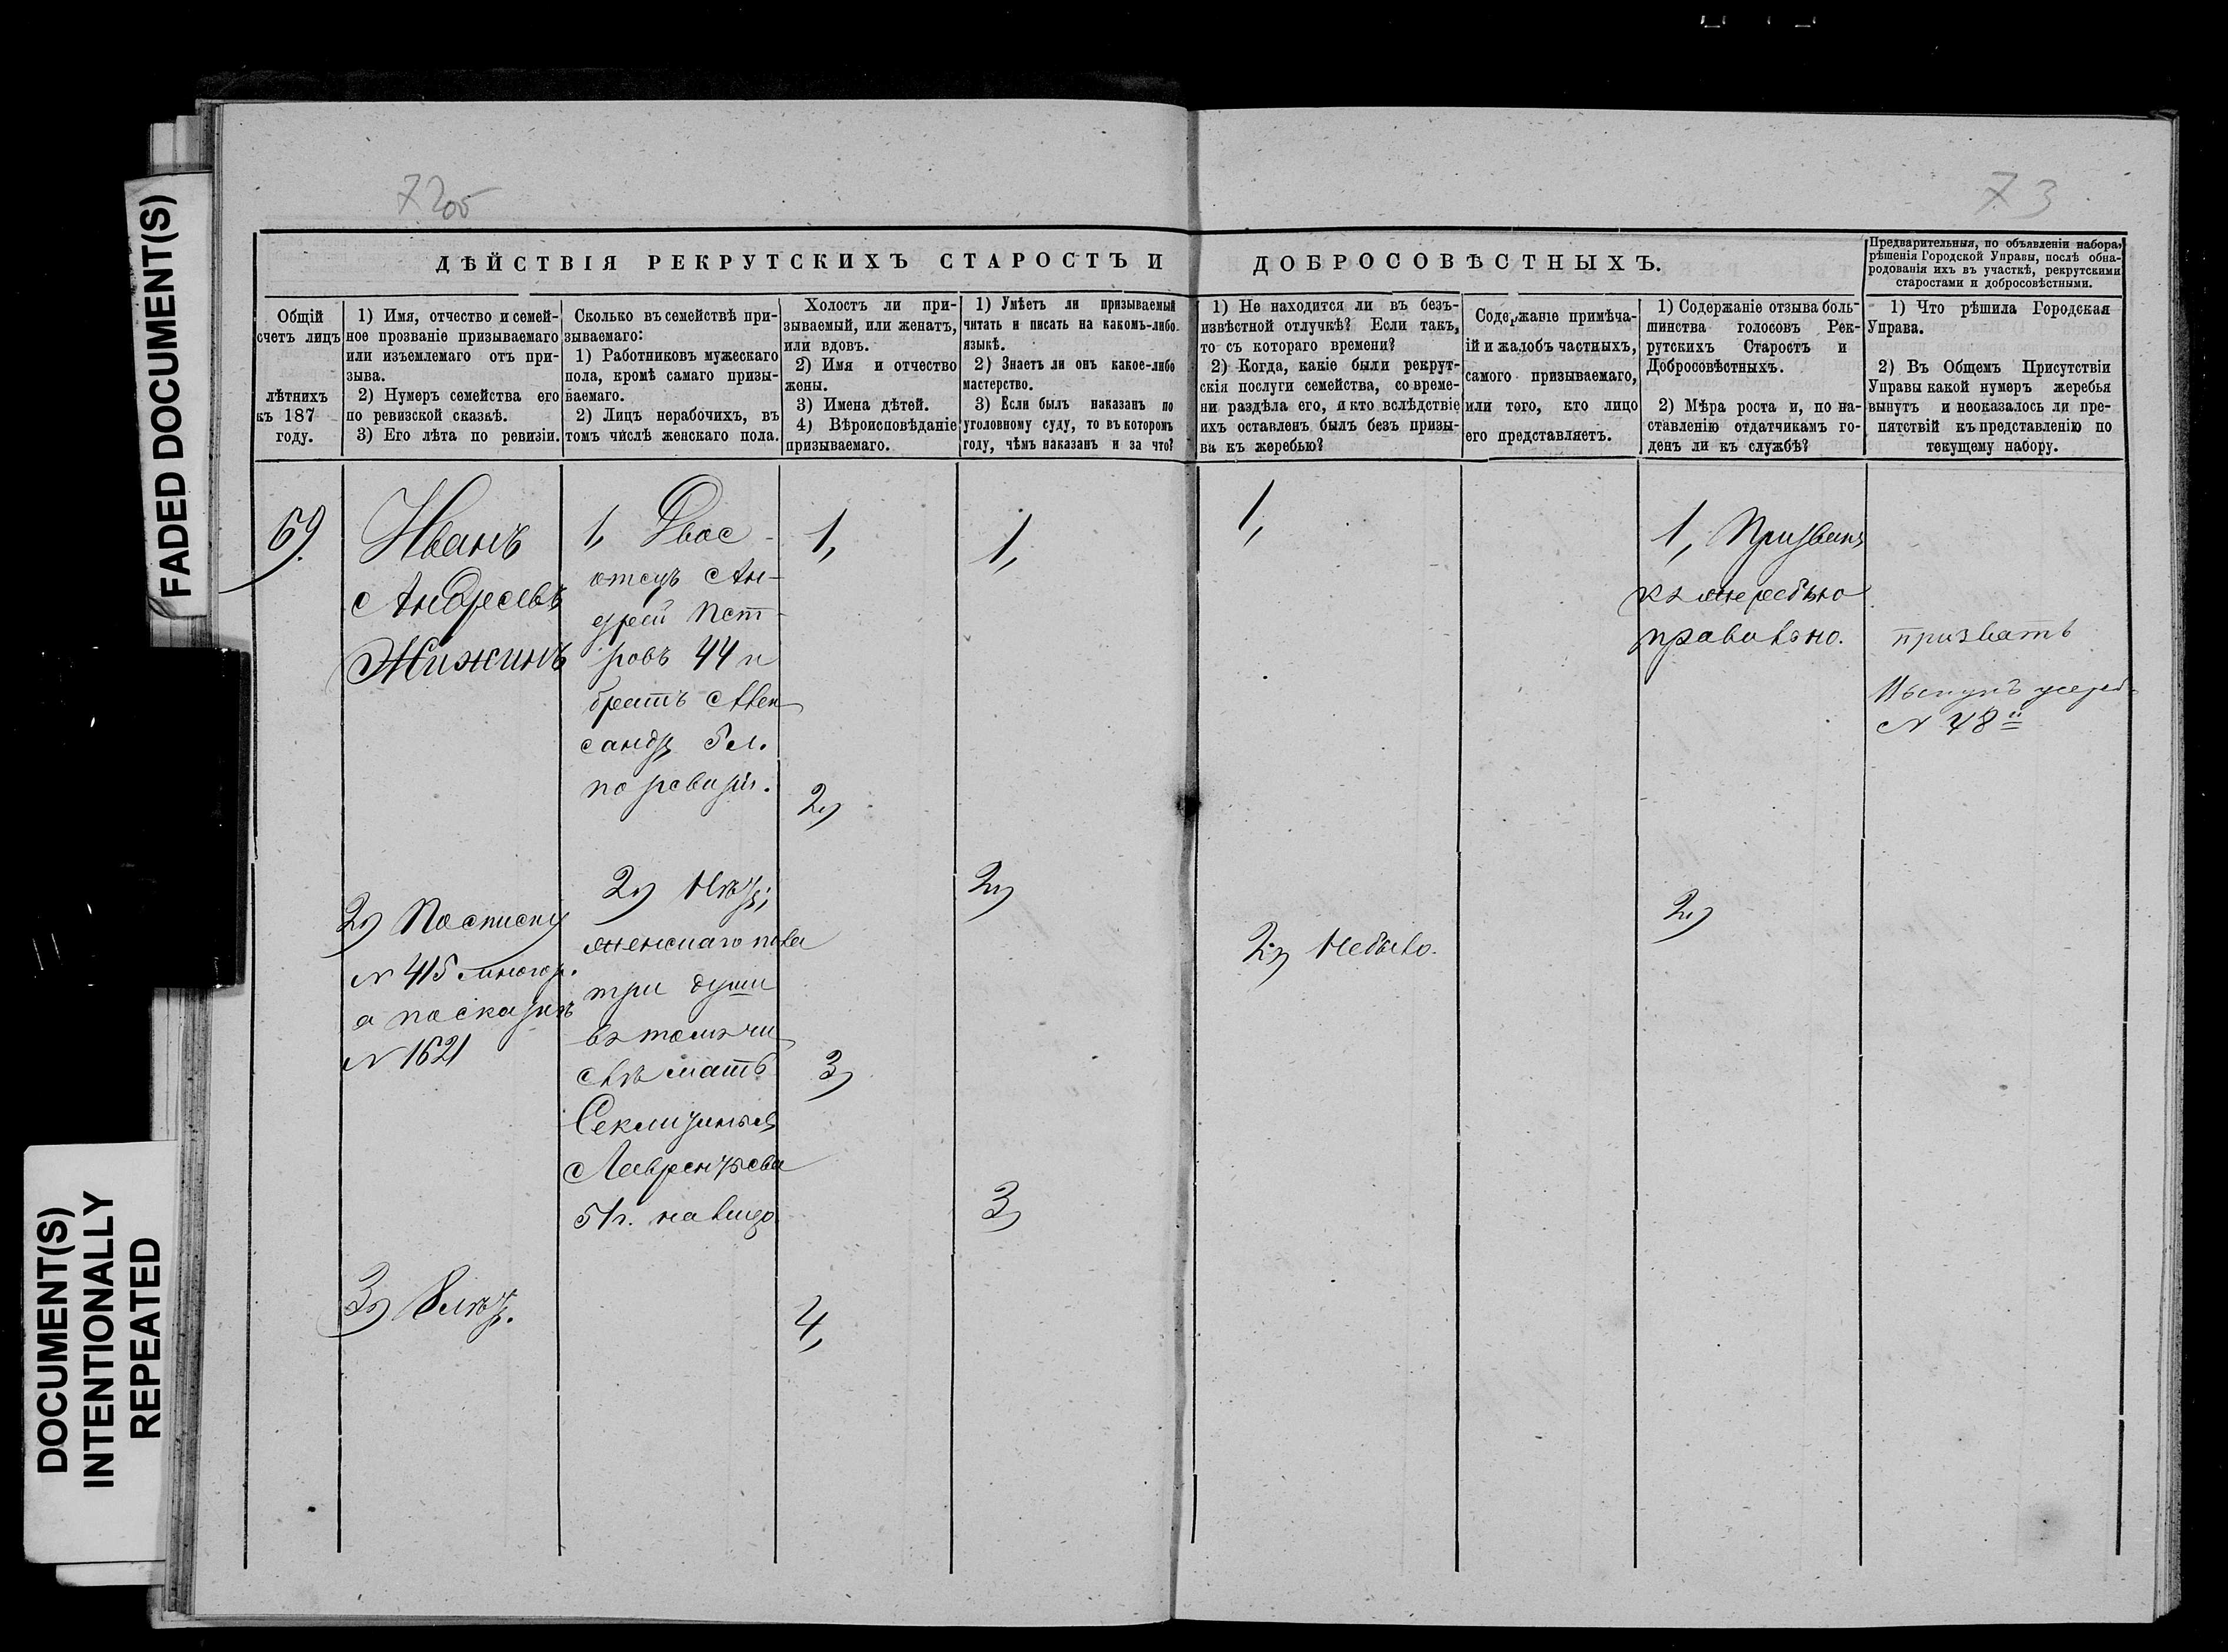 FADED DOCUMENT(S)
DOCUMENT(S)
INTENTIONALLY
REPEATED
72об
73
ДѢЙСТВІЯ РЕКРУТСКИХЪ СТАРОСТЪ И ДОБРОСОВѢСТНЫХЪ.
Предварительныя, по объявленіи набора,
рѣшенія Городской Управы, послѣ обна-
родованія ихъ въ участкѣ, рекрутскими
старостами и добросовѣстными.
Общій
счетъ лицъ
лѣтнихъ
къ 187
году.
1) Имя, отчество и семей-
ное прозваніе призываемаго
или изъемлемаго отъ при-
зыва.
2) Нумеръ семейства его
по ревизской сказкѣ.
3) Его лѣта по ревизіи.
Сколько въ семействѣ при-
зываемаго:
1) Работниковъ мужескаго
пола, кромѣ самаго призы-
ваемаго.
2) Лицъ нерабочихъ, въ
томъ числѣ женскаго пола.
Холостъ ли при-
зываемый, или женатъ,
или вдовъ.
2) Имя и отчество
жены.
3) Имена дѣтей.
4) Вѣроисповѣданіе
призываемаго.
1) Умѣетъ ли призываемый
читать и писать на какомъ-либо
языкѣ.
2) Знаетъ ли онъ какое-либо
мастерство.
3) Если былъ наказанъ по
уголовному суду, то въ которомъ
году, чѣмъ наказанъ и за что?
1) Не находится ли въ безъ-
извѣстной отлучкѣ? Если такъ,
то съ котораго времени?
2) Когда, какіе были рекрут-
скія послуги семейства, со време-
ни раздѣла его, и кто вслѣдствіе
ихъ оставленъ былъ безъ призы-
ва къ жеребью?
Содержаніе примѣча-
ій и жалобъ частныхъ,
самого призываемаго,
или того, кто лицо
его представляетъ.
1) Содержаніе отзыва боль-
шинства голосовъ Рек-
рутскихъ Старостъ и
Добросовѣстныхъ.
2) Мѣра роста и, по на-
ставленію отдатчикамъ го-
денъ ли къ службѣ?
1) Что рѣшила Городская
Управа.
2) Въ Общемъ Присутствіи
Управы какой нумеръ жеребья
вынутъ и неоказалось ли пре-
пятствій къ представленію по
текущему набору.
69.
Иванъ
Андреевъ
Жижинъ
2) По списку
№ 415 многор.
а по сказкѣ
№ 1621
3) 8 лѣтъ.
1, Двое
отецъ Ан-
дрей Пет-
ровъ 44 и
братъ Алек
сандръ 5 л.
по ревизіи.
2) Нѣтъ;
женскаго пола
три души
въ томъ чи
слѣ мать
Лаврентьева
51 г. на лицо.
1,
2)
3)
4,
1,
2)
3)
1,
2) Небыло.
1, Призванъ
къ жеребью
правильно.
2)
призвать
Вынутъ жереб-
№ 48й